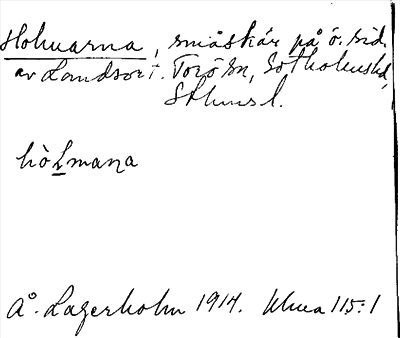 Holmarna, småskär på ö. sid.
av Landsort. Torö sn, Sotholms hd,
Sthms l.
hò̀L̲maṇa
Å. Lagerholm 1914. 115:1